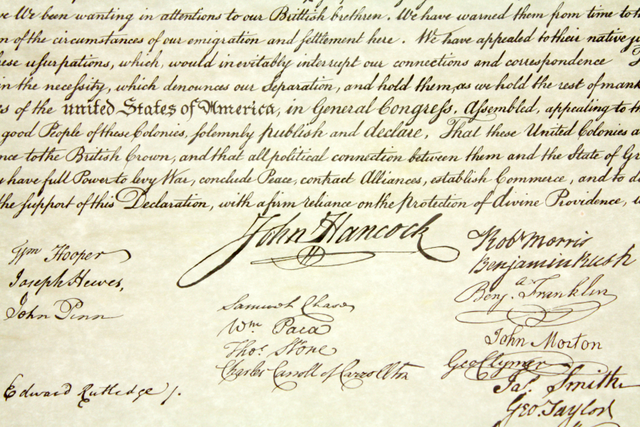 ve We been wanting in attentions to our Brittish brethren. We have warned them from time to t
n of the circumstances of our emigration and settlement here. We have appealed to their native ju
hese usurpations, which, would inevitably interrupt our connections and correspondence
in the necessity, which denounces our Separation, and hold them, as we hold the rest of mank
es of the united States of America, in General Congress, Assembled, appealing to th
good People of these Colonies, solemnly publish and declare, That these United Colonies a
nce to the British Crown, and that all political connection between them and the State of Gr
y have full Power to levy War, conclude Peace, contract Alliances, establish Commerce, and to d
the support of this Declaration, with a firm reliance on the Protection of divine Providence, w
John Hancock
Wm Hooper
Joseph Hewes,
John Penn
Edward Rutledge /.
Samuel Chase
Wm. Paca
Thos. Stone
Charles Carroll of Carrollton
Robt Morris
Benjamin Rush
Benja. Franklin
John Morton
Geo Clymer
Jas. Smith
Geo. Taylor